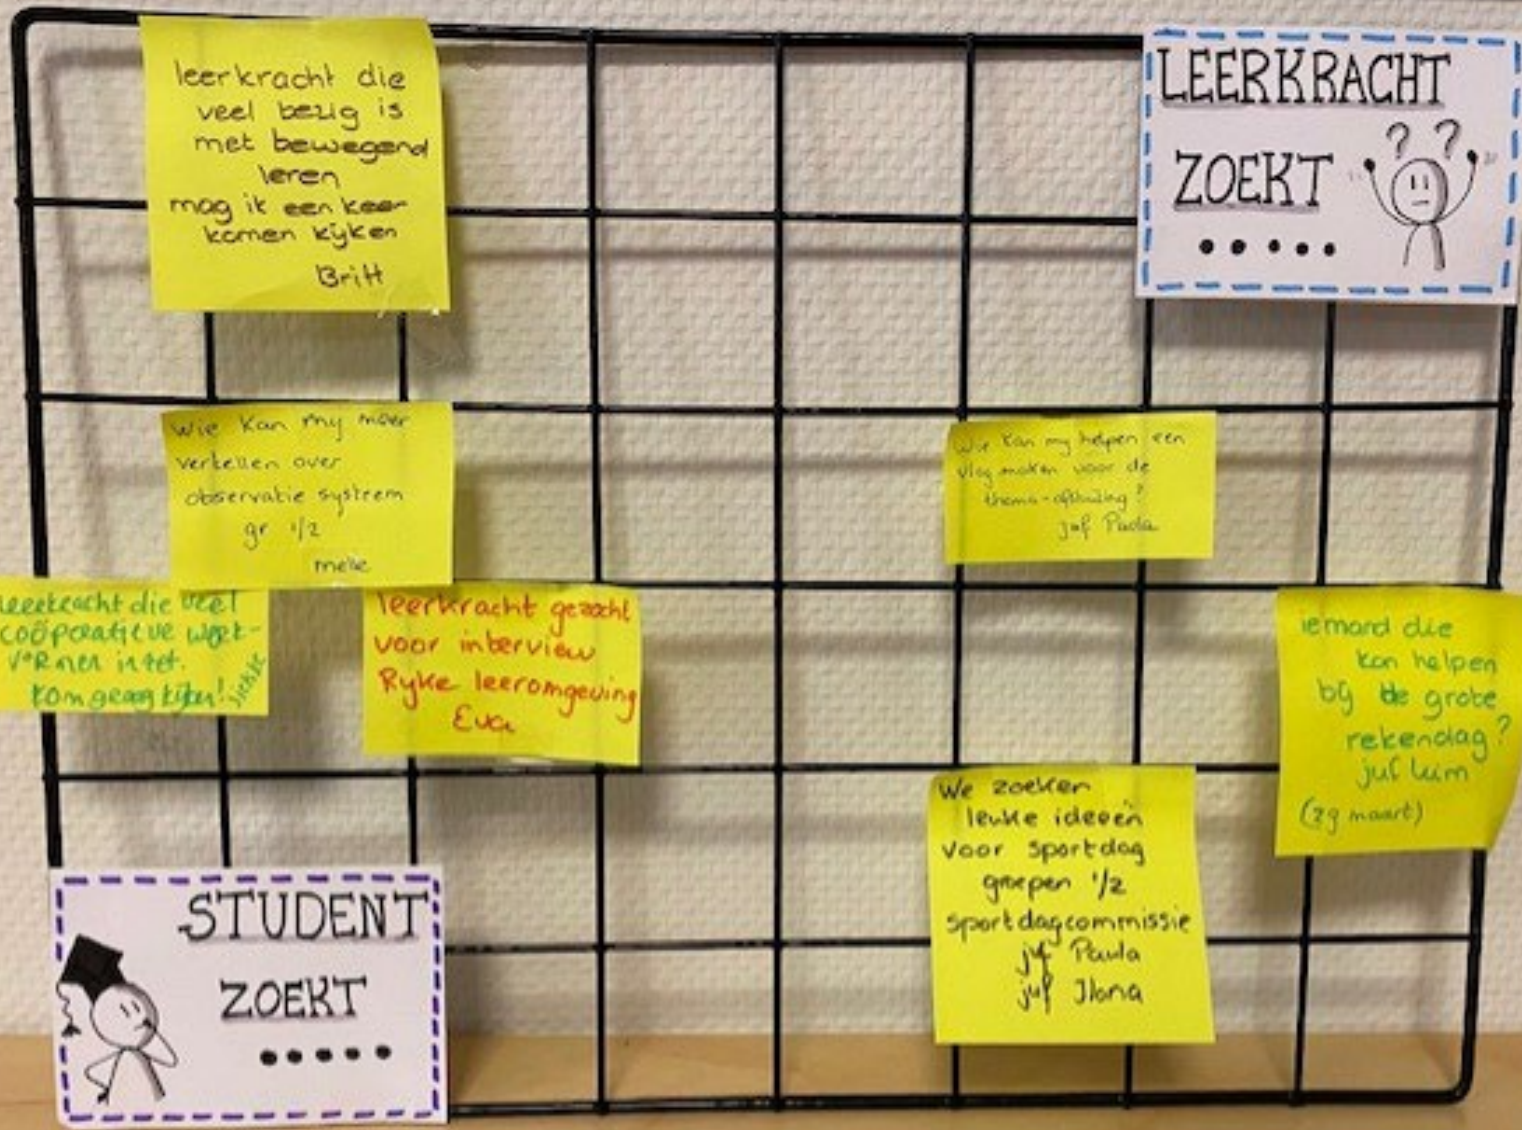 leerkracht die
veel bezig is
met bewegend
leren
mag ik een keer
komen kijken
Britt
LEERKRACHT
ZOEKT
? ?
.....
Wie kan mij meer
vertellen over
observatie systeem
gr 1/2
melle
Wie kan mij helpen een
vlog maken voor de
thema-afsluiting?
juf Paula
leerkracht die veel
coöperatieve werk-
vormen inzet.
Kom graag kijken!
leerkracht gezocht
voor interview
Rijke leeromgeving
Eva
iemand die
kan helpen
bij de grote
rekendag?
juf
(29 maart)
We zoeken
leuke ideeën
voor sportdag
groepen 1/2
sportdagcommissie
juf Paula
juf Ilona
STUDENT
ZOEKT
.....